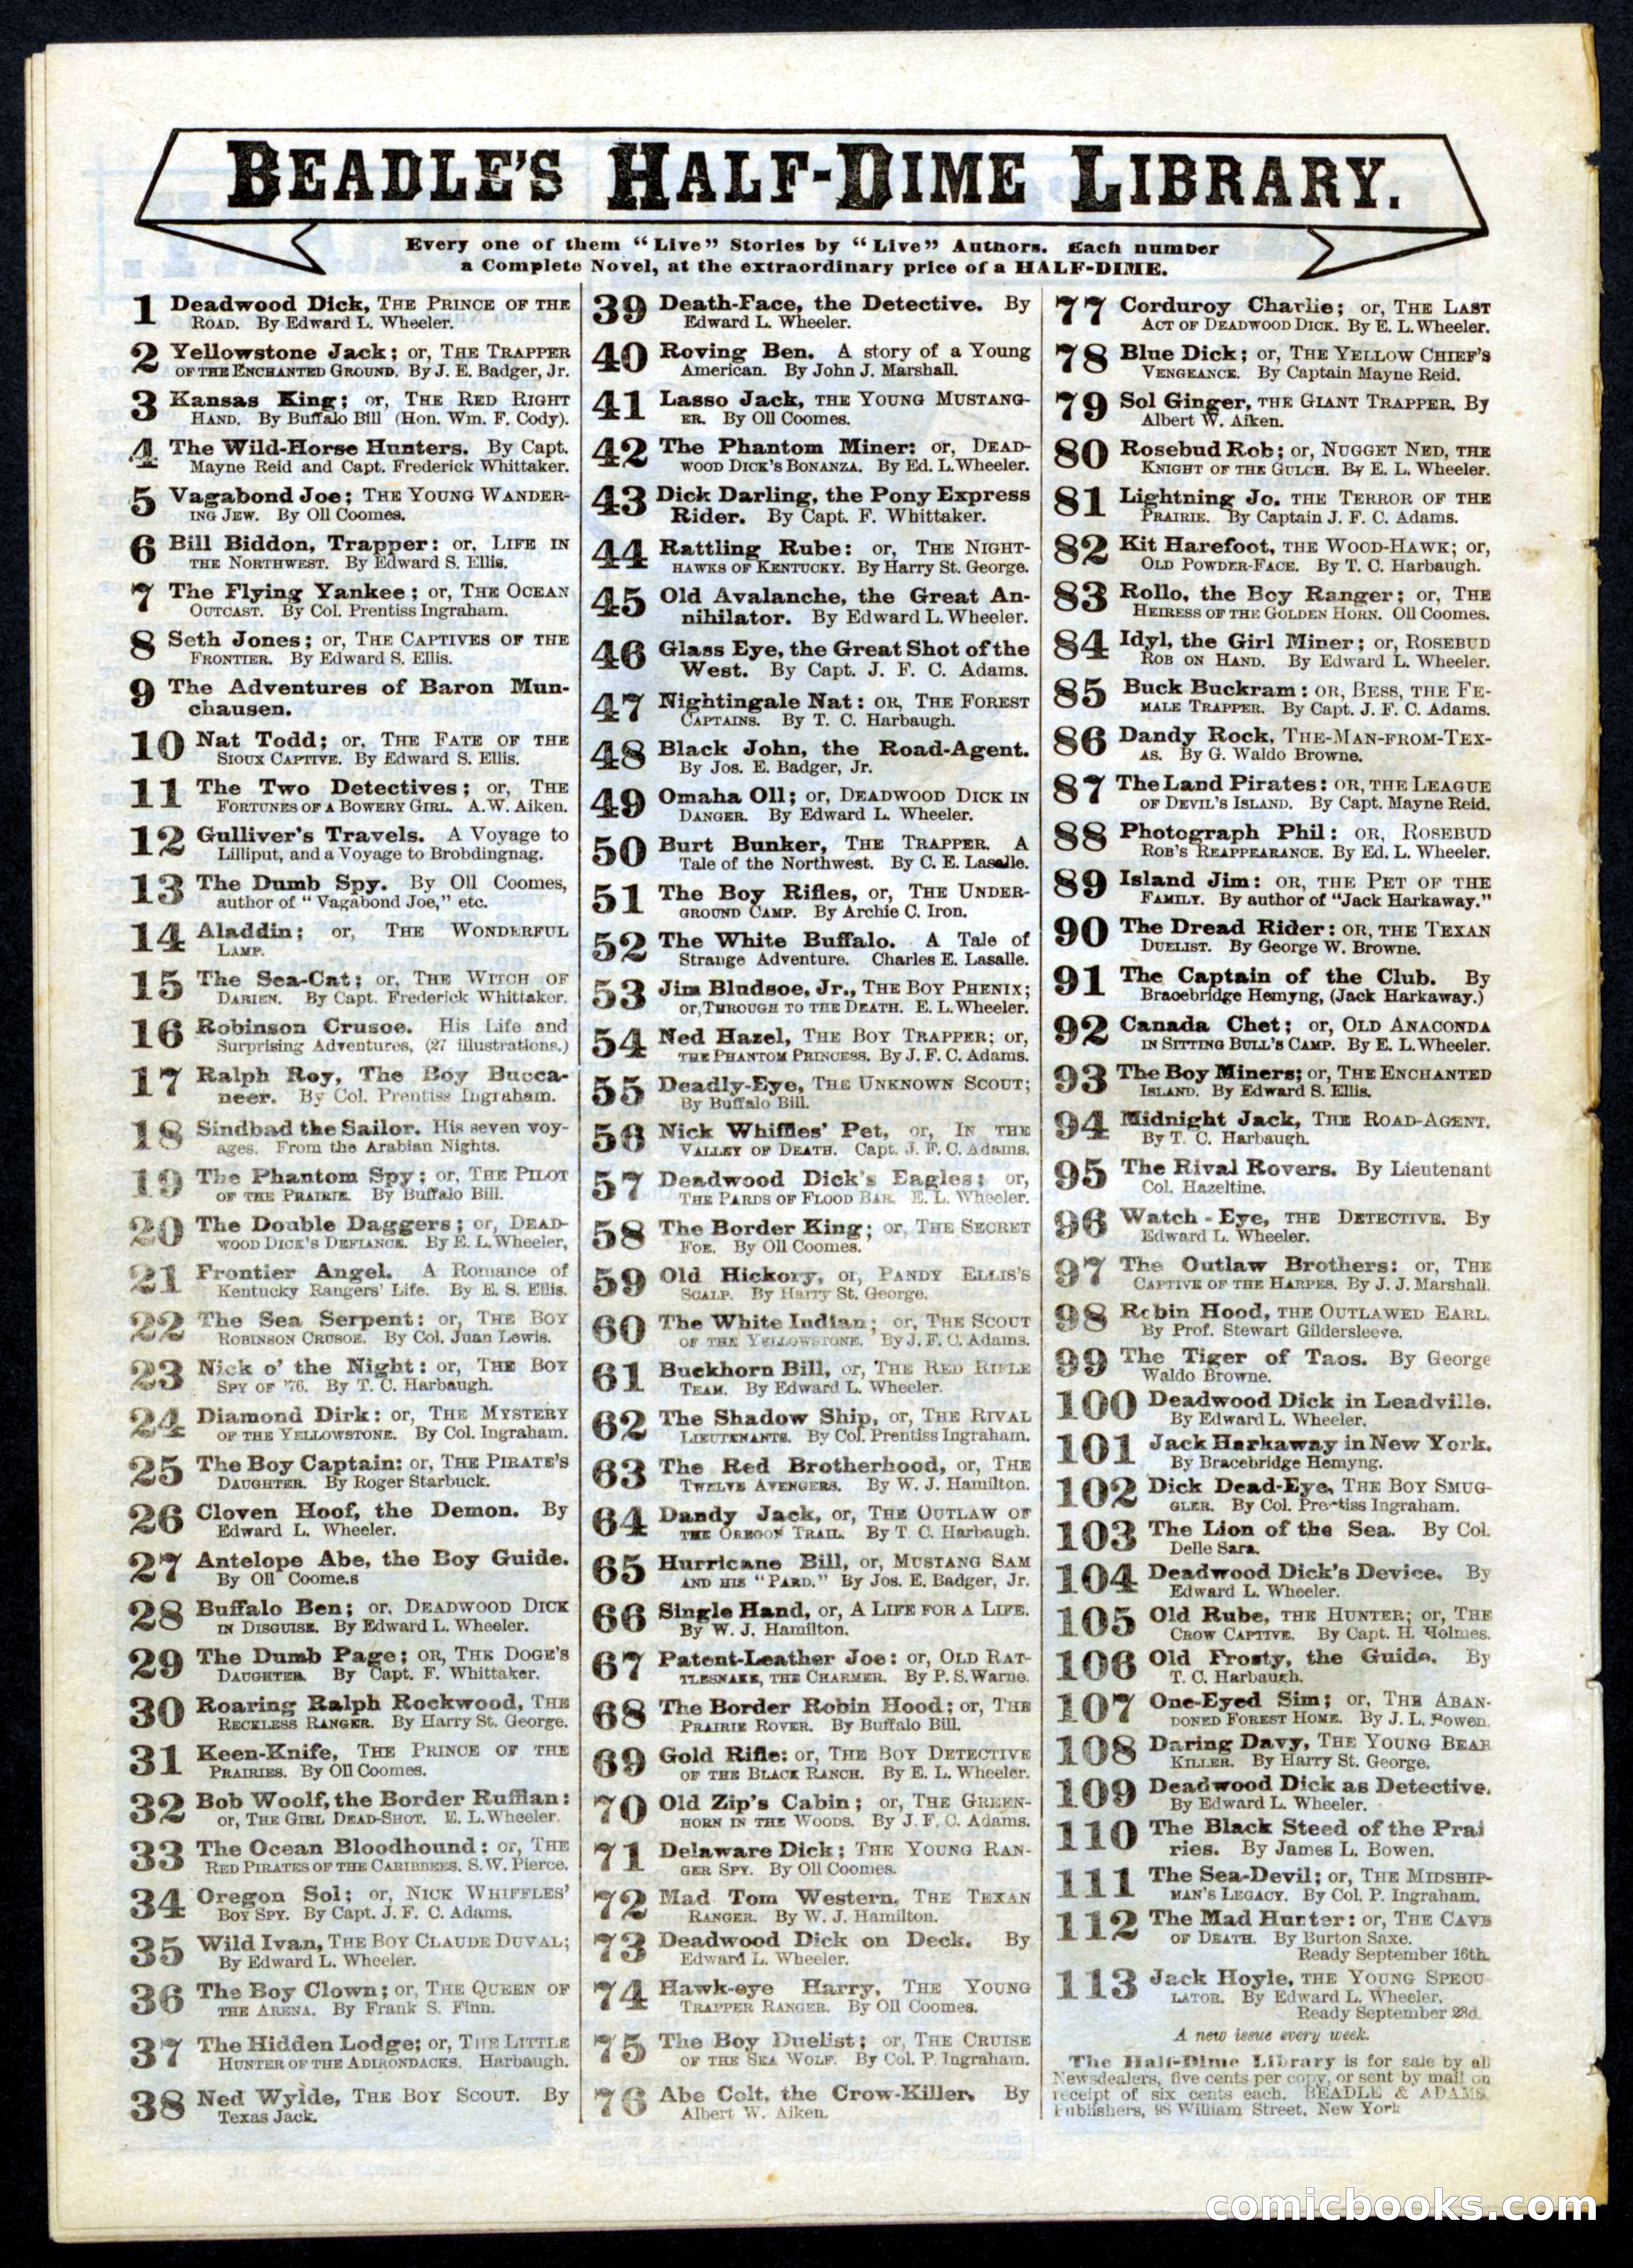 BEADLE'S HALF-DIME LIBRARY.
Every one of them "Live" Stories by "Live" Authors. Each number
a Complete Novel, at the extraordinary price of a HALF-DIME.
1 Deadwood Dick, THE PRINCE OF THE
ROAD. By Edward L. Wheeler.
2 Yellowstone Jack; or, THE TRAPPER
OF THE ENCHANTED GROUND. By J. E. Badger, Jr.
3 Kansas King; or, THE RED RIGHT
HAND. By Buffalo Bill (Hon. Wm. F. Cody).
4 The Wild-Horse Hunters. By Capt.
Mayne Reid and Capt. Frederick Whittaker.
5 Vagabond Joe; THE YOUNG WANDER-
ING JEW. By Oll Coomes.
6 Bill Biddon, Trapper: or, LIFE IN
THE NORTHWEST. By Edward S. Ellis.
7 The Flying Yankee; or, THE OCEAN
OUTCAST. By Col. Prentiss Ingraham.
8 Seth Jones; or, THE CAPTIVES OF THE
FRONTIER. By Edward S. Ellis.
9 The Adventures of Baron Mun-
chausen.
10 Nat Todd; or, THE FATE OF THE
SIOUX CAPTIVE. By Edward S. Ellis.
11 The Two Detectives; or, THE
FORTUNES OF A BOWERY GIRL. A. W. Aiken.
12 Gulliver's Travels. A Voyage to
Lilliput, and a Voyage to Brobdingnag.
13 The Dumb Spy. By Oll Coomes,
author of "Vagabond Joe," etc.
14 Aladdin; or, THE WONDERFUL
LAMP.
15 The Sea-Cat; or, THE WITCH OF
DARIEN. By Capt. Frederick Whittaker.
16 Robinson Crusoe. His Life and
Surprising Adventures, (27 illustrations.)
17 Ralph Roy, The Boy Bucca-
neer. By Col. Prentiss Ingraham.
18 Sindbad the Sailor. His seven voy-
ages. From the Arabian Nights.
19 The Phantom Spy; or, THE PILOT
OF THE PRAIRIE. By Buffalo Bill.
20 The Double Daggers; or, DEAD-
WOOD DICK'S DEFIANCE. By E. L. Wheeler,
21 Frontier Angel. A Romance of
Kentucky Rangers' Life. By E. S. Ellis.
22 The Sea Serpent: or, THE BOY
ROBINSON CRUSOE. By Col. Juan Lewis.
23 Nick o' the Night: or, THE BOY
SPY OF '76. By T. C. Harbaugh.
24 Diamond Dirk: or, THE MYSTERY
OF THE YELLOWSTONE. By Col. Ingraham.
25 The Boy Captain: or, THE PIRATE'S
DAUGHTER. By Roger Starbuck.
26 Cloven Hoof, the Demon. By
Edward L. Wheeler.
27 Antelope Abe, the Boy Guide.
By Oll Coome.s
28 Buffalo Ben; or, DEADWOOD DICK
IN DISGUISE. By Edward L. Wheeler.
29 The Dumb Page; OR, THE DOGE'S
DAUGHTER. By Capt. F. Whittaker.
30 Roaring Ralph Rockwood, THE
RECKLESS RANGER. By Harry St. George.
31 Keen-Knife, THE PRINCE OF THE
PRAIRIES. By Oll Coomes.
32 Bob Woolf, the Border Ruffian:
or, THE GIRL DEAD-SHOT. E. L. Wheeler.
33 The Ocean Bloodhound: or, THE
RED PIRATES OF THE CARIBBEES. S. W. Pierce.
34 Oregon Sol; or, NICK WHIFFLES'
BOY SPY. By Capt. J. F. C. Adams.
35 Wild Ivan, THE BOY CLAUDE DUVAL;
By Edward L. Wheeler.
36 The Boy Clown; or, THE QUEEN OF
THE ARENA. By Frank S. Finn.
37 The Hidden Lodge; or, THE LITTLE
HUNTER OF THE ADIRONDACKS. Harbaugh.
38 Ned Wylde, THE BOY SCOUT. By
Texas Jack.
39 Death-Face, the Detective. By
Edward L. Wheeler.
40 Roving Ben. A story of a Young
American. By John J. Marshall.
41 Lasso Jack, THE YOUNG MUSTANG-
ER. By Oll Coomes.
42 The Phantom Miner: or, DEAD-
WOOD DICK'S BONANZA. By Ed. L. Wheeler.
43 Dick Darling, the Pony Express
Rider. By Capt. F. Whittaker.
44 Rattling Rube: or, THE NIGHT-
HAWKS OF KENTUCKY. By Harry St. George.
45 Old Avalanche, the Great An-
nihilator. By Edward L. Wheeler.
46 Glass Eye, the Great Shot of the
West. By Capt. J. F. C. Adams.
47 Nightingale Nat: OR, THE FOREST
CAPTAINS. By T. C. Harbaugh.
48 Black John, the Road-Agent.
By Jos. E. Badger, Jr.
49 Omaha Oll; or, DEADWOOD DICK IN
DANGER. By Edward L. Wheeler.
50 Burt Bunker, THE TRAPPER. A
Tale of the Northwest. By C. E. Lasalle.
51 The Boy Rifles, or, THE UNDER-
GROUND CAMP. By Archie C. Iron.
52 The White Buffalo. A Tale of
Strange Adventure. Charles E. Lasalle.
53 Jim Bludsoe, Jr., THE BOY PHENIX;
or, THROUGH TO THE DEATH. E. L. Wheeler.
54 Ned Hazel, THE BOY TRAPPER; or,
THE PHANTOM PRINCESS. By J. F. C. Adams.
55 Deadly-Eye, THE UNKNOWN SCOUT;
By Buffalo Bill.
56 Nick Whiffles' Pet, or, IN THE
VALLEY OF DEATH. Capt. J. F. C. Adams.
57 Deadwood Dick's Eagles; or,
THE PARDS OF FLOOD BAR. E. L. Wheeler.
58 The Border King; or, THE SECRET
FOE. By Oll Coomes.
59 Old Hickory, or, PANDY ELLIS'S
SCALP. By Harry St. George.
60 The White Indian; or, THE SCOUT
OF THE YELLOWSTONE. By J. F. C. Adams.
61 Buckhorn Bill, or, THE RED RIFLE
TEAM. By Edward L. Wheeler.
62 The Shadow Ship, or, THE RIVAL
LIEUTENANTS. By Col. Prentiss Ingraham.
63 The Red Brotherhood, or, THE
TWELVE AVENGERS. By W. J. Hamilton.
64 Dandy Jack, or, THE OUTLAW OF
THE OREGON TRAIL. By T. C. Harbaugh.
65 Hurricane Bill, or, MUSTANG SAM
AND HIS "PARD." By Jos. E. Badger, Jr.
66 Single Hand, or, A LIFE FOR A LIFE.
By W. J. Hamilton.
67 Patent-Leather Joe: or, OLD RAT-
TLESNAKE, THE CHARMER. By P. S. Warne.
68 The Border Robin Hood; or, THE
PRAIRIE ROVER. By Buffalo Bill.
69 Gold Rifle: or, THE BOY DETECTIVE
OF THE BLACK RANCH. By E. L. Wheeler.
70 Old Zip's Cabin; or, THE GREEN-
HORN IN THE WOODS. By J. F. C. Adams.
71 Delaware Dick; THE YOUNG RAN-
GER SPY. By Oll Coomes.
72 Mad Tom Western, THE TEXAN
RANGER. By W. J. Hamilton.
73 Deadwood Dick on Deck. By
Edward L. Wheeler.
74 Hawk-eye Harry, THE YOUNG
TRAPPER RANGER. By Oll Coomes.
75 The Boy Duelist; or, THE CRUISE
OF THE SEA WOLF. By Col. P. Ingraham.
76 Abe Colt, the Crow-Killer, By
Albert W. Aiken.
77 Corduroy Charlie; or, THE LAST
ACT OF DEADWOOD DICK. By E. L. Wheeler.
78 Blue Dick; or, THE YELLOW CHIEF'S
VENGEANCE. By Captain Mayne Reid.
79 Sol Ginger, THE GIANT TRAPPER. By
Albert W. Aiken.
80 Rosebud Rob; or, NUGGET NED, THE
KNIGHT OF THE GULCH. By E. L. Wheeler.
81 Lightning Jo, THE TERROR OF THE
PRAIRIE. By Captain J. F. C. Adams.
82 Kit Harefoot, THE WOOD-HAWK; or,
OLD POWDER-FACE. By T. C. Harbaugh.
83 Rollo, the Boy Ranger; or, THE
HEIRESS OF THE GOLDEN HORN. Oll Coomes.
84 Idyl, the Girl Miner; or, ROSEBUD
ROB ON HAND. By Edward L. Wheeler.
85 Buck Buckram: OR, BESS, THE FE-
MALE TRAPPER. By Capt. J. F. C. Adams.
86 Dandy Rock, THE-MAN-FROM-TEX-
AS. By G. Waldo Browne.
87 The Land Pirates: OR, THE LEAGUE
OF DEVIL'S ISLAND. By Capt. Mayne Reid.
88 Photograph Phil: OR, ROSEBUD
ROB'S REAPPEARANCE. By Ed. L. Wheeler.
89 Island Jim: OR, THE PET OF THE
FAMILY. By author of "Jack Harkaway."
90 The Dread Rider: OR, THE TEXAN
DUELIST. By George W. Browne.
91 The Captain of the Club. By
Bracebridge Hemyng, (Jack Harkaway.)
92 Canada Chet; or, OLD ANACONDA
IN SITTING BULL'S CAMP. By E. L. Wheeler.
93 The Boy Miners; or, THE ENCHANTED
ISLAND. By Edward S. Ellis.
94 Midnight Jack, THE ROAD-AGENT.
By T. C. Harbaugh.
95 The Rival Rovers. By Lieutenant
Col. Hazeltine.
96 Watch-Eye, THE DETECTIVE. By
Edward L. Wheeler.
97 The Outlaw Brothers: or, THE
CAPTIVE OF THE HARPES. By J. J. Marshall.
98 Robin Hood, THE OUTLAWED EARL.
By Prof. Stewart Gildersleeve.
99 The Tiger of Taos. By George
Waldo Browne.
100 Deadwood Dick in Leadville.
By Edward L. Wheeler.
101 Jack Harkaway in New York.
By Bracebridge Hemyng.
102 Dick Dead-Eye, THE BOY SMUG-
GLER. By Col. Prentiss Ingraham.
103 The Lion of the Sea. By Col.
Delle Sara.
104 Deadwood Dick's Device, By
Edward L. Wheeler.
105 Old Rube, THE HUNTER; or, THE
CROW CAPTIVE. By Capt. H. Holmes.
106 Old Frosty, the Guide. By
T. C. Harbaugh.
107 One-Eyed Sim; or, THE ABAN-
DONED FOREST HOME. By J. L. Bowen.
108 Daring Davy, THE YOUNG BEAR
KILLER. By Harry St. George.
109 Deadwood Dick as Detective.
By Edward L. Wheeler.
110 The Black Steed of the Prai
ries. By James L. Bowen.
111 The Sea-Devil; or, THE MIDSHIP-
MAN'S LEGACY. By Col. P. Ingraham.
112 The Mad Hunter: or, THE CAVE
OF DEATH. By Burton Saxe.
Ready September 16th.
113 Jack Hoyle, THE YOUNG SPECU
LATOR. By Edward L. Wheeler.
Ready September 23d.
A new issue every week.
The Half-Dime Library is for sale by all
Newsdealers, five cents per copy, or sent by mail on
receipt of six cents each. BEADLE & ADAMS,
Publishers, 98 William Street, New York
comicbooks.com